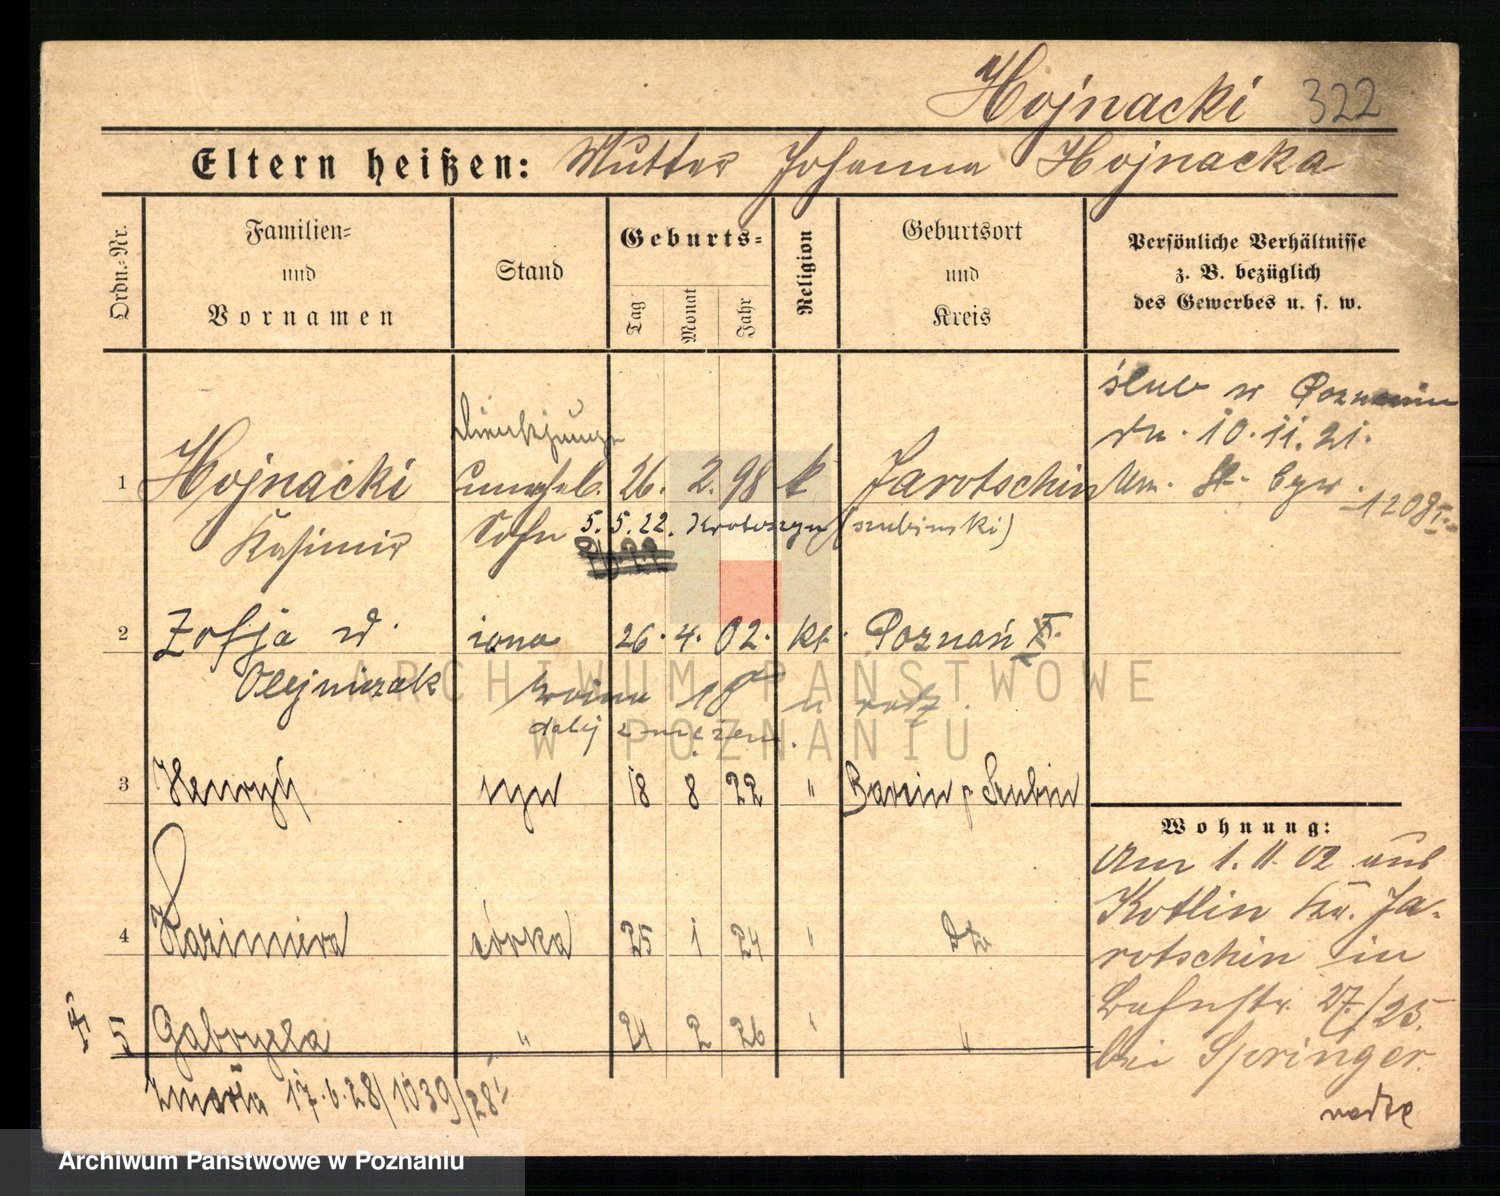 Hojnacki 322
Eltern heißen: Mutter Johanna Hojnacka
Ordn.-Nr.
Familien-
und
Vornamen
Stand
Geburts-
Tag
Monat
Jahr
Religion
Geburtsort
und
Kreis
Persönliche Verhältnisse
z. B. bezüglich
des Gewerbes u. s. w.
ślub w Poznaniu
dn. 10.11.21.
Um. St. 1208
Dienstjunge
1 Hojnacki unehel. 26. 2. 98 k Jarotschin
Kasimir Sohn 5.5.22. Krotoszyn (szubinski)
2 Zofja d. żona 26. 4. 02. kt. Poznań
Olejniczak
dalej z mężem.
3 Henryk syn 18 8 22 " Barcin p Szubin
4 Kazimiera córka 25 1 24 " dto
5 Gabryela " 24 2 26 " "
zmarła 17.6.28/1039/28
Wohnung:
Am 1.11.02 aus
Kotlin Kr. Ja-
rotschin in
27/25.
bei Springer.
ARCHIWUM PAŃSTWOWE
W POZNANIU
Archiwum Państwowe w Poznaniu